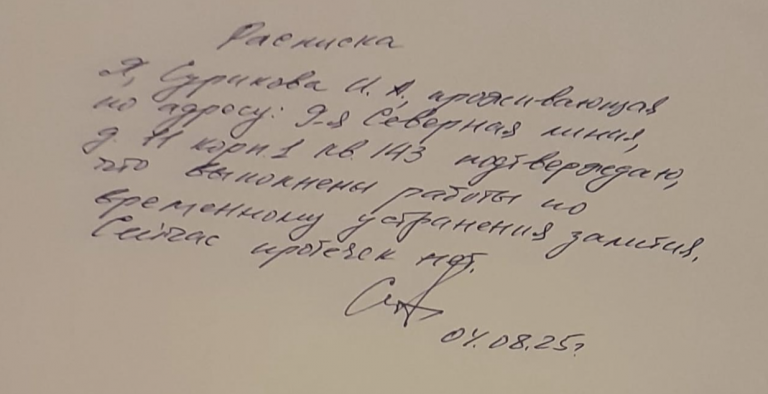 Расписка
Я, Сурикова И. А., проживающая
по адресу: 9-я Северная линия,
д. 11 корп. 1 кв. 143 подтверждаю,
что выполнены работы по
временному устранения залития.
Сейчас протечек нет.
04.08.25г.